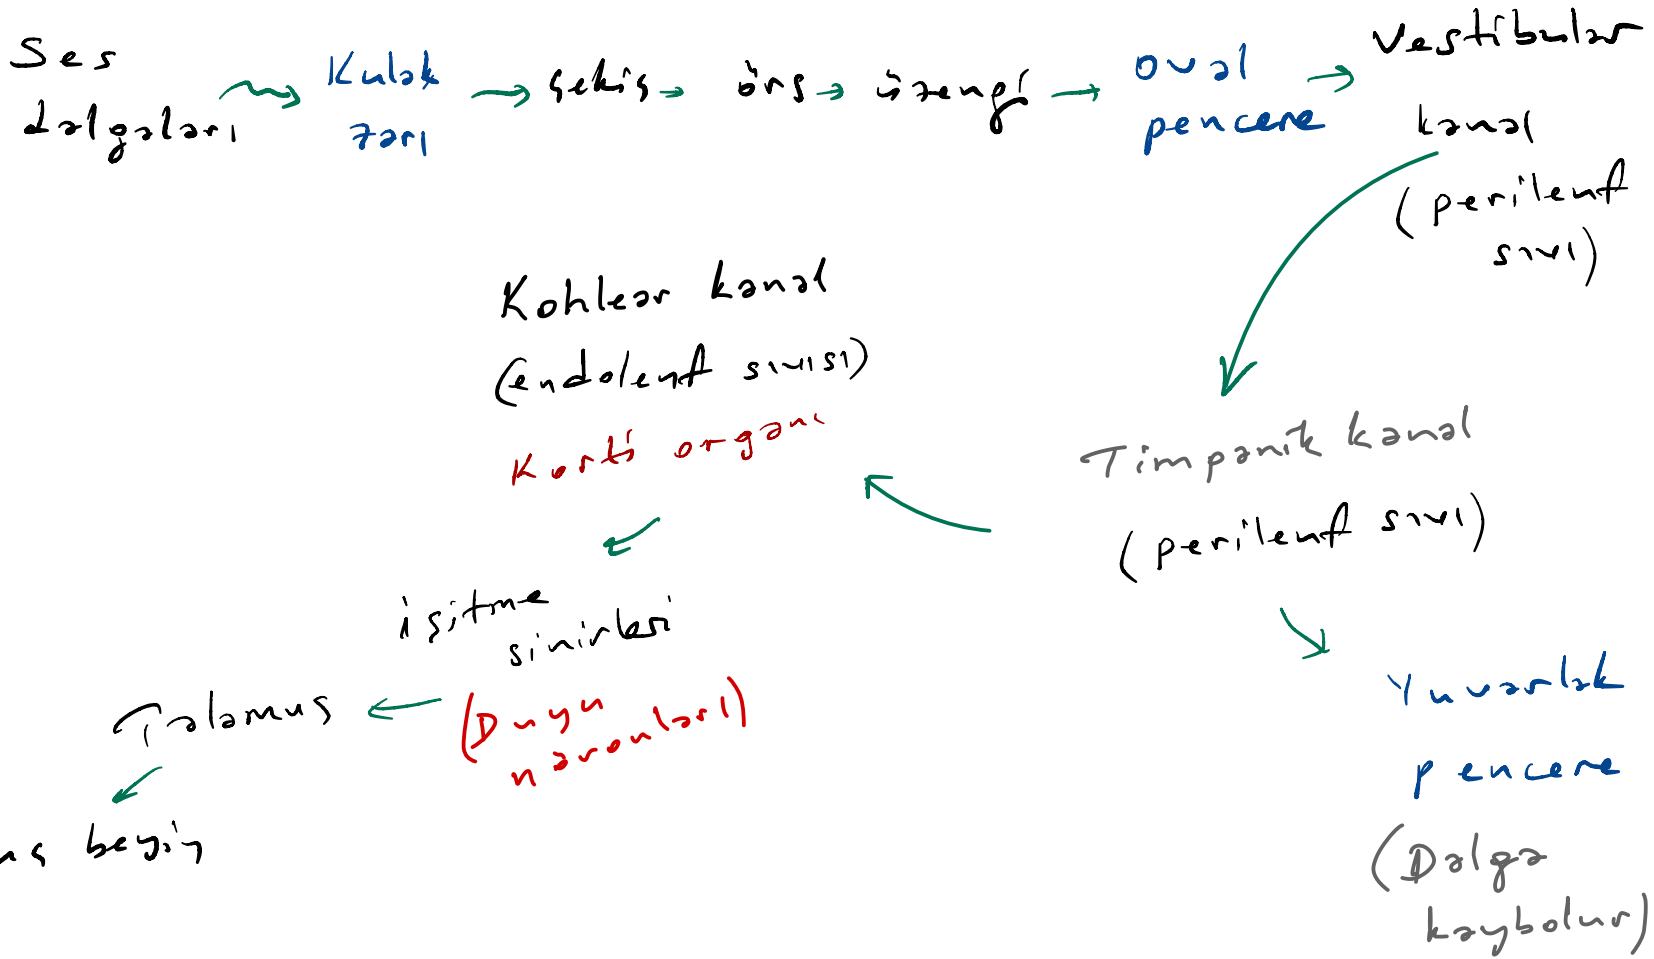 Ses
dalgaları
Kulak
zarı
çekiç
örs
üzengi
oval
pencere
vestibular
kanal
(perilenf
sıvı)
Kohlear kanal
(endolenf sıvısı)
Korti organı
Timpanik kanal
(perilenf sıvı)
işitme
sinirleri
(Duyu
nöronları)
Talamus
beyin
Yuvarlak
pencere
(Dalga
kaybolur)